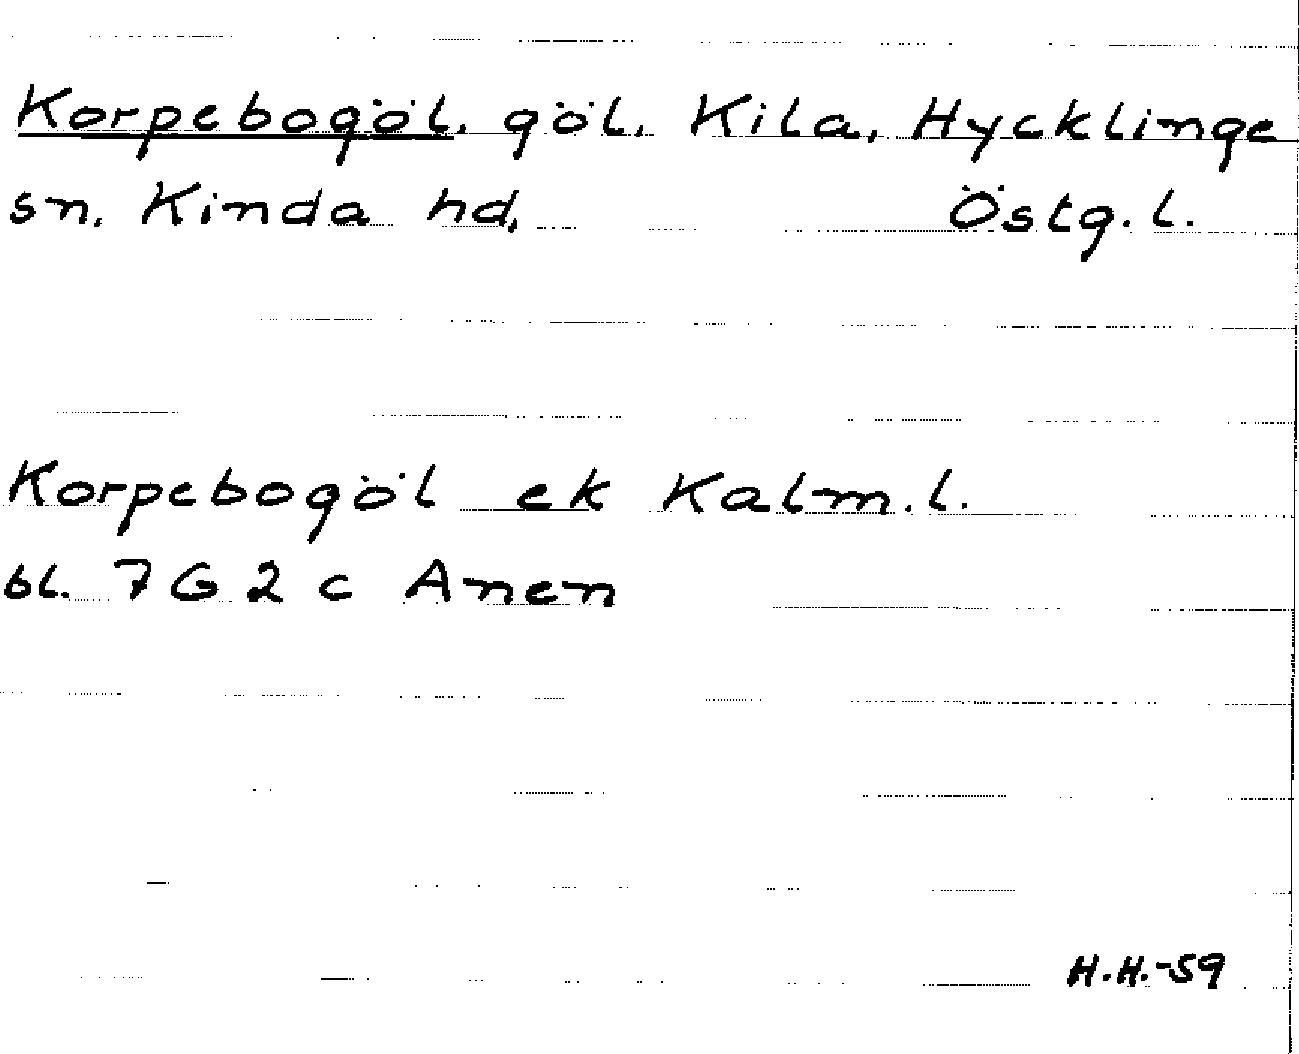 Korpebogöl. göl. Kila, Hycklinge
sn. Kinda hd. Östg. l.
Korpebogöl ek Kalm. l.
bl. 7 G 2 c Anen
H.H.-59